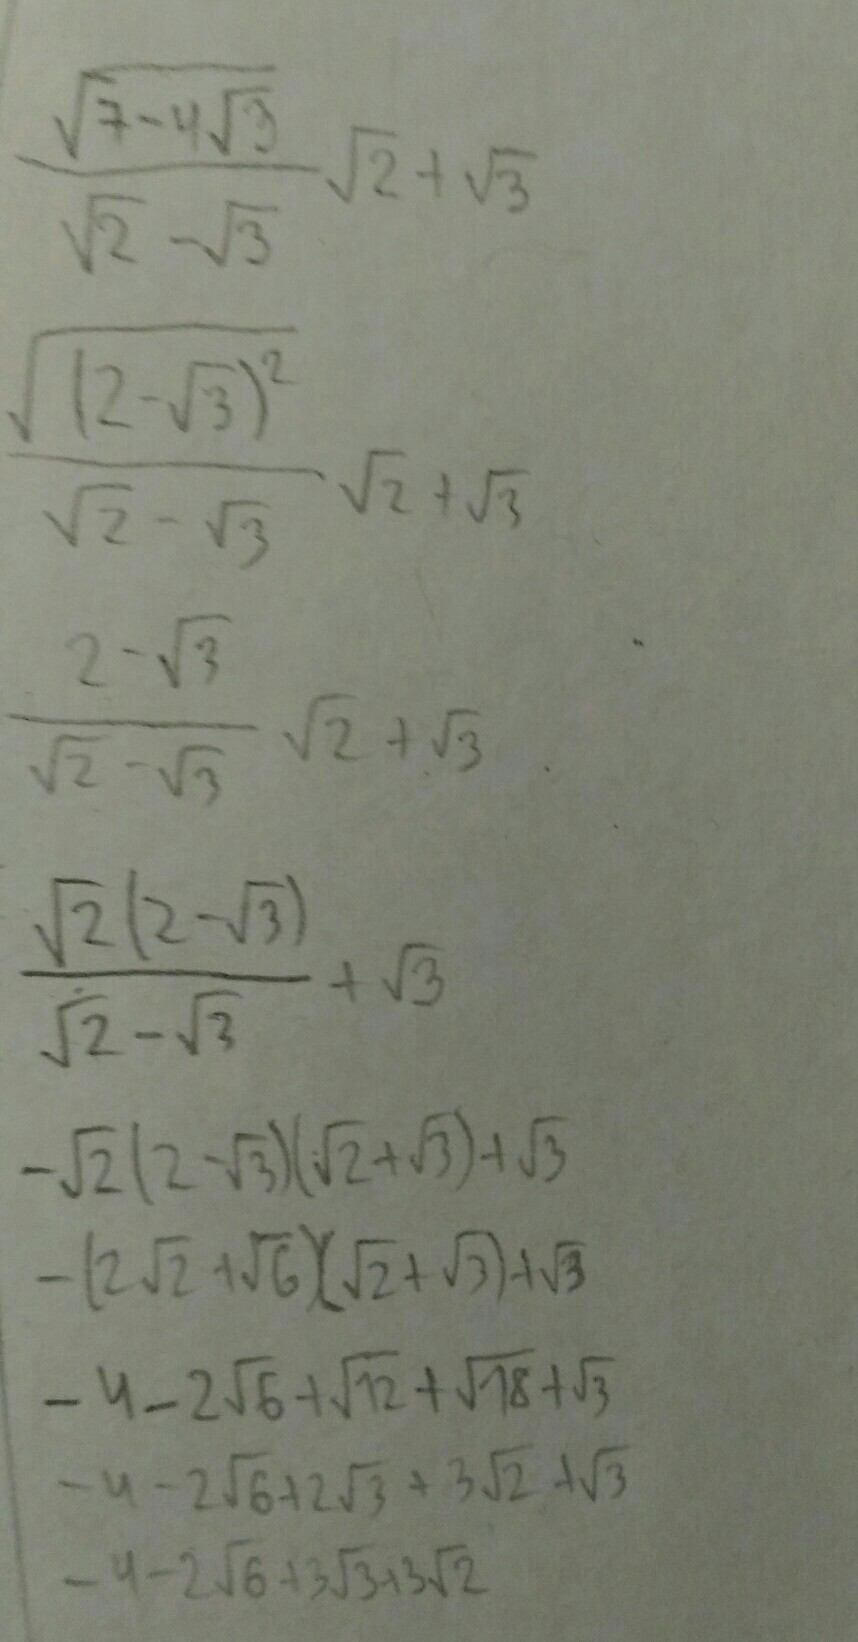 \frac{\sqrt{7-4\sqrt{3}}}{\sqrt{2}-\sqrt{3}}\sqrt{2}+\sqrt{3}
\frac{\sqrt{(2-\sqrt{3})^2}}{\sqrt{2}-\sqrt{3}}\sqrt{2}+\sqrt{3}
\frac{2-\sqrt{3}}{\sqrt{2}-\sqrt{3}}\sqrt{2}+\sqrt{3}
\frac{\sqrt{2}(2-\sqrt{3})}{\sqrt{2}-\sqrt{3}}+\sqrt{3}
-\sqrt{2}(2-\sqrt{3})(\sqrt{2}+\sqrt{3})+\sqrt{3}
-(2\sqrt{2}+\sqrt{6})(\sqrt{2}+\sqrt{3})+\sqrt{3}
-4-2\sqrt{6}+\sqrt{12}+\sqrt{18}+\sqrt{3}
-4-2\sqrt{6}+2\sqrt{3}+3\sqrt{2}+\sqrt{3}
-4-2\sqrt{6}+3\sqrt{3}+3\sqrt{2}